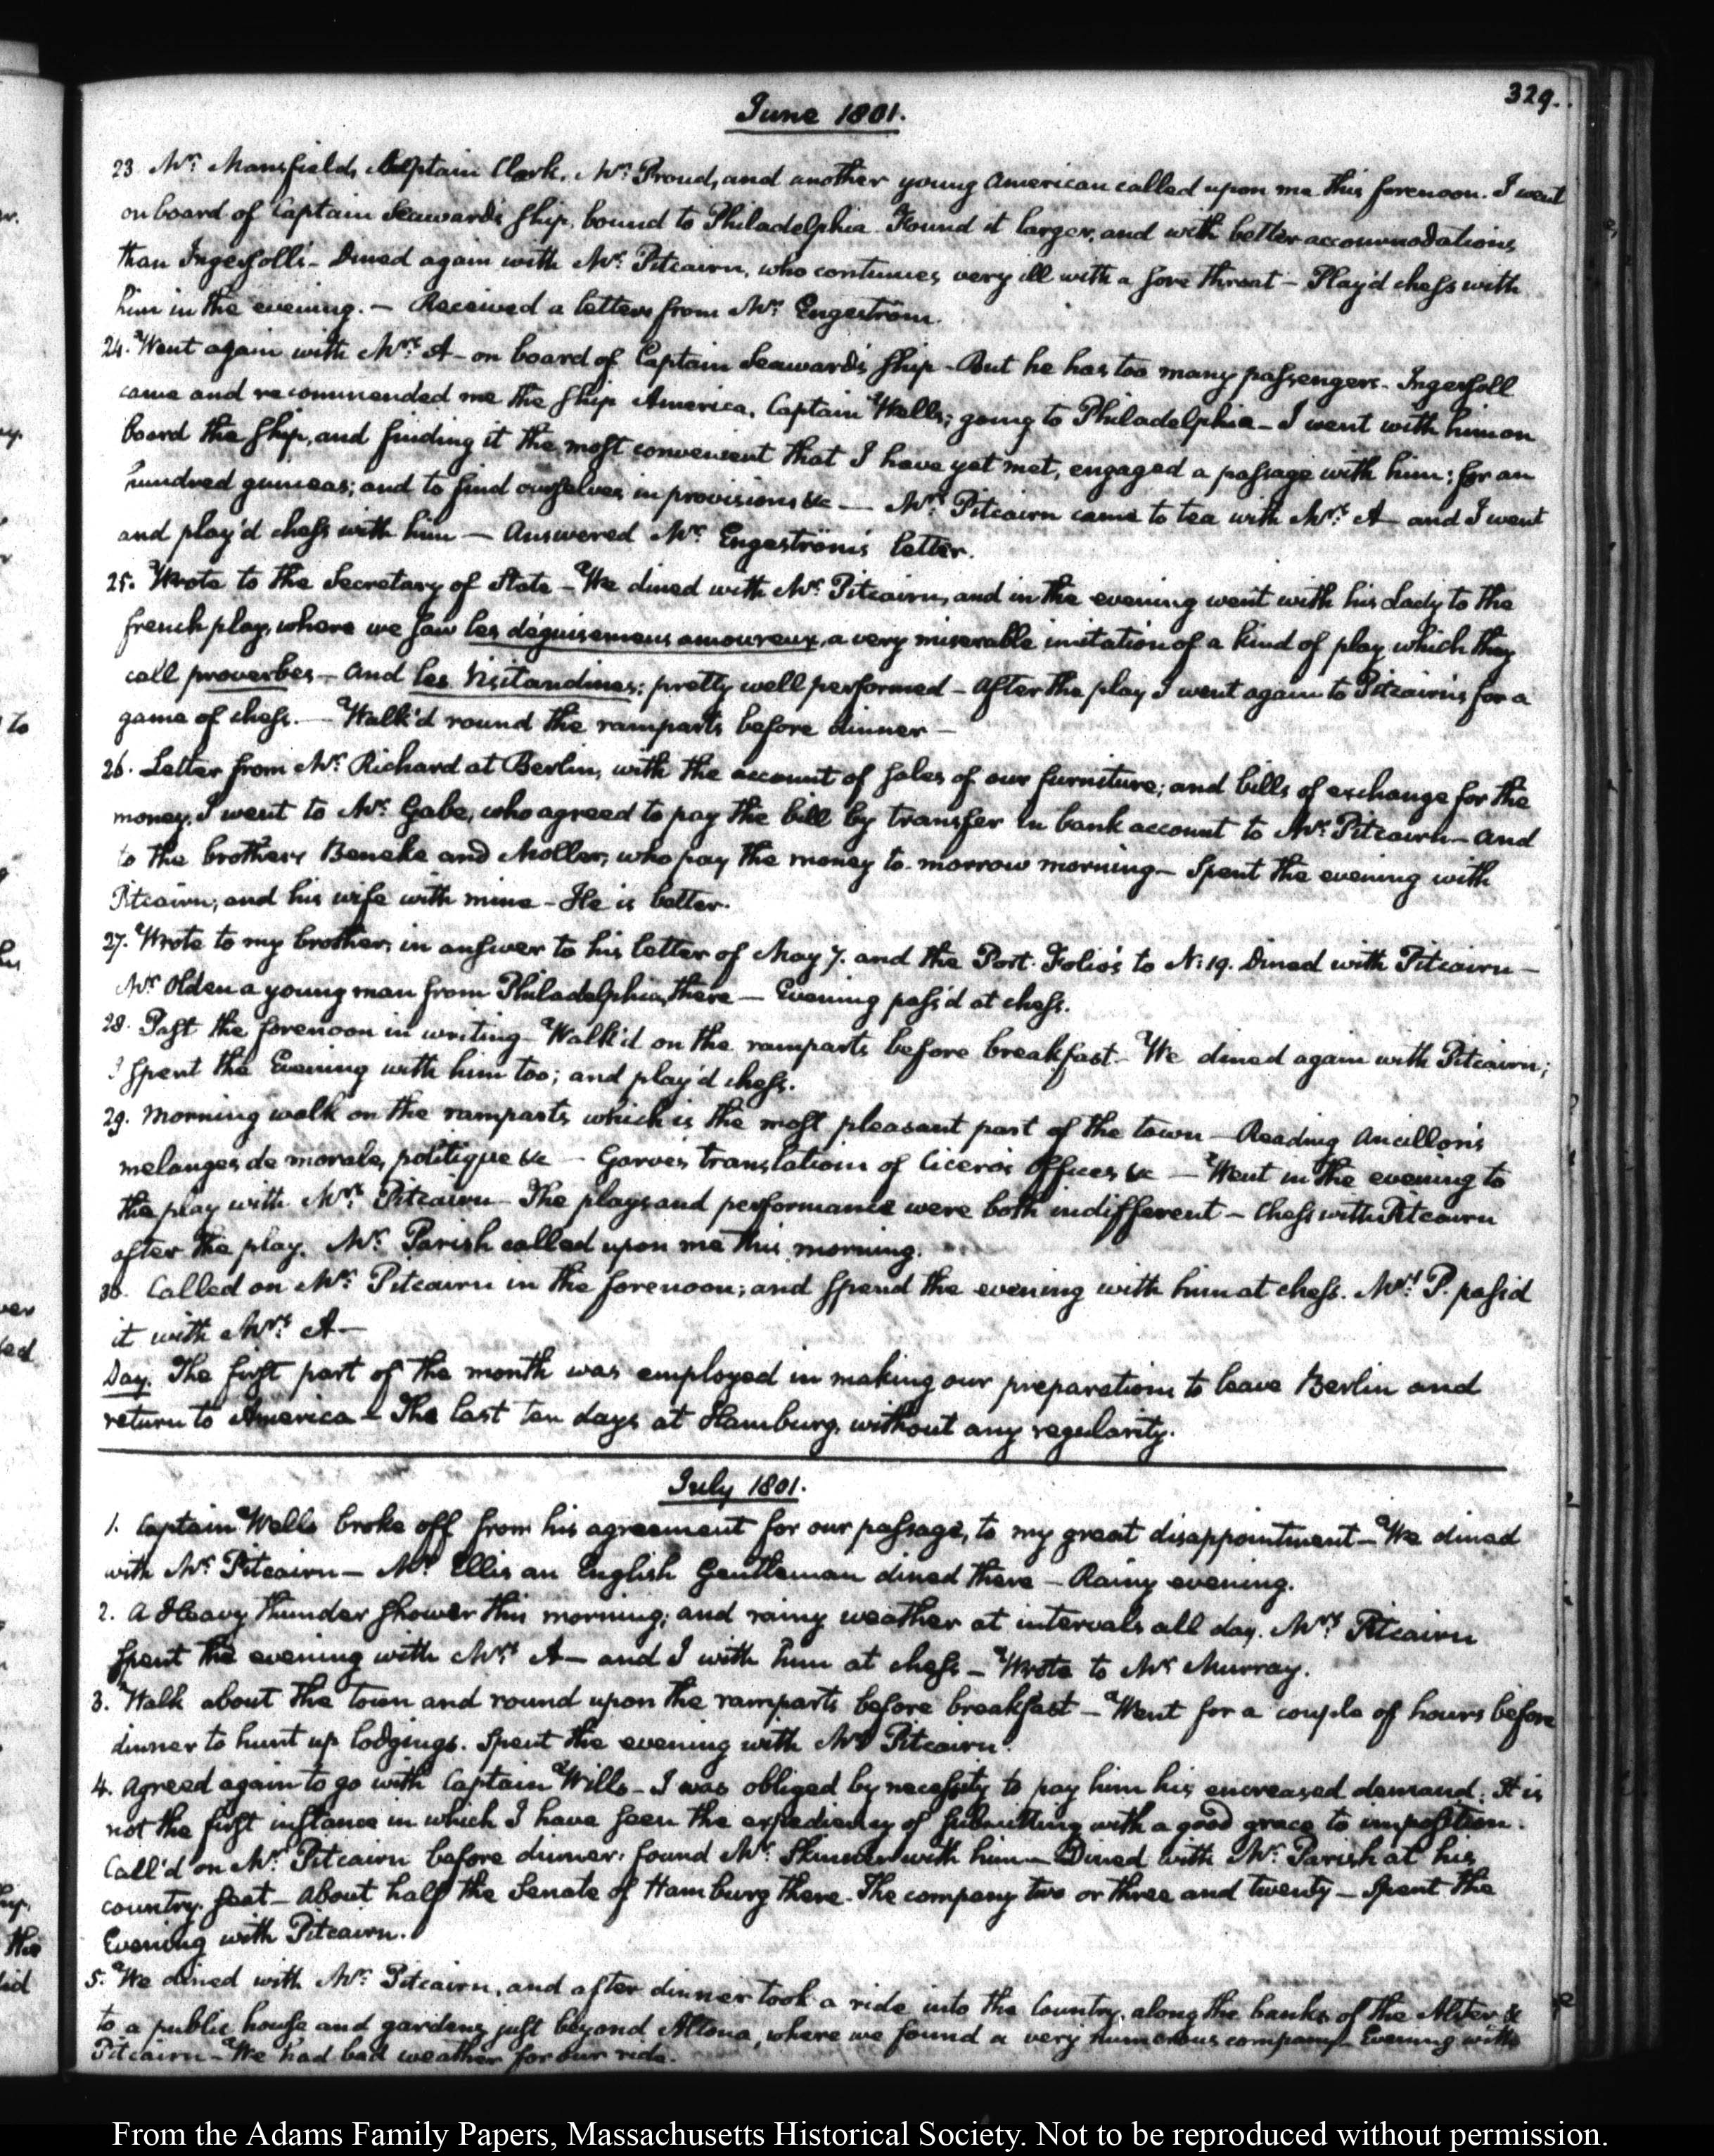 329.
June 1801.
23. Mr. Mansfield, Captain Clark, Mr. Proud, and another young American called upon me this forenoon. I went
on board of Captain Seaward's ship, bound to Philadelphia. Found it larger, and with better accommodations,
than Ingersoll's - Dined again with Mr. Pitcairn, who continues very ill with a sore throat - Play'd chess with
him in the evening. - Received a letter from Mr. Engeström.
24. Went again with Mrs. A- on board of Captain Seaward's ship - But he has too many passengers - Ingersoll
came and recommended me the ship America, Captain Wells; going to Philadelphia - I went with him on
board the ship, and finding it the most convenient that I have yet met, engaged a passage with him: for an
hundred guineas; and to find ourselves in provisions &c — Mrs. Pitcairn came to tea with Mrs. A- and I went
and play'd chess with him - Answered Mr. Engeström's letter.
25. Wrote to the Secretary of State - We dined with Mr. Pitcairn, and in the evening went with his Lady to the
french play, where we saw les déguisemens amoureux, a very miserable imitation of a kind of play which they
call proverbes - and les Visitandines; pretty well performed - After the play I went again to Pitcairn's for a
game of chess. — Walk'd round the ramparts before dinner -
26. Letter from Mr. Richard at Berlin, with the account of sales of our furniture; and bills of exchange for the
money. I went to Mr. Gabe, who agreed to pay the bill by transfer in bank account to Mr. Pitcairn - and
to the brothers Beneke and Moller, who pay the money to-morrow morning - Spent the evening with
Pitcairn; and his wife with mine - He is better.
27. Wrote to my brother, in answer to his letter of May 7. and the Port-Folio's to N: 19. Dined with Pitcairn -
Mr. Olden a young man from Philadelphia, there - Evening pass'd at chess.
28. Past the forenoon in writing - Walk'd on the ramparts before breakfast - We dined again with Pitcairn;
I spent the Evening with him too; and play'd chess.
29. Morning walk on the ramparts which is the most pleasant part of the town - Reading Ancillon's
melanges de morale, politique &c - Garve's translation of Cicero's Offices &c — Went in the evening to
the play with Mrs. Pitcairn - The plays and performance were both indifferent - Chess with Pitcairn
after the play. Mr. Parish called upon me this morning.
30. Called on Mr. Pitcairn in the forenoon; and spend the evening with him at chess. Mrs. P. pass'd
it with Mrs. A-
Day. The first part of the month was employed in making our preparations to leave Berlin and
return to America - The last ten days at Hamburg, without any regularity.
July 1801.
1. Captain Wells broke off from his agreement for our passage, to my great disappointment - We dined
with Mr. Pitcairn - Mr. Ellis an English Gentleman dined there - Rainy evening.
2. A Heavy thunder shower this morning; and rainy weather at intervals all day. Mrs. Pitcairn
spent the evening with Mrs. A- and I with him at chess - Wrote to Mr. Murray.
3. Walk about the town and round upon the ramparts before breakfast - Went for a couple of hours before
dinner to hunt up lodgings. Spent the evening with Mr. Pitcairn.
4. Agreed again to go with Captain Wills - I was obliged by necessity to pay him his encreased demand. It is
not the first instance in which I have seen the expediency of submitting with a good grace to imposition.
Call'd on Mr. Pitcairn before dinner. found Mr. Skinner with him - Dined with Mr. Parish at his
country seat - About half the Senate of Hamburg there. The company two or three and twenty - Spent the
Evening with Pitcairn.
5. We dined with Mr. Pitcairn, and after dinner took a ride into the Country, along the banks of the Alster &
to a public house and gardens just beyond Altona, where we found a very numerous company - Evening with
Pitcairn - We had bad weather for our ride.
From the Adams Family Papers, Massachusetts Historical Society. Not to be reproduced without permission.